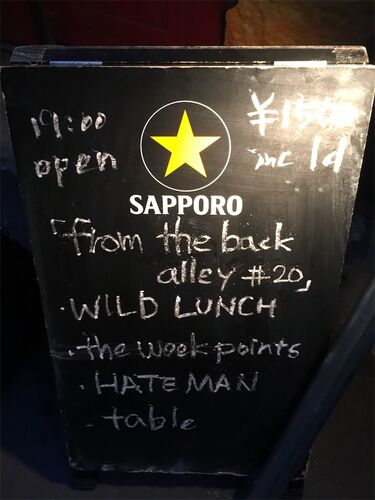 19:00
open
¥1500
inc 1d
SAPPORO
「from the back
alley #20」
・WILD LUNCH
・the week points
・HATE MAN
・table